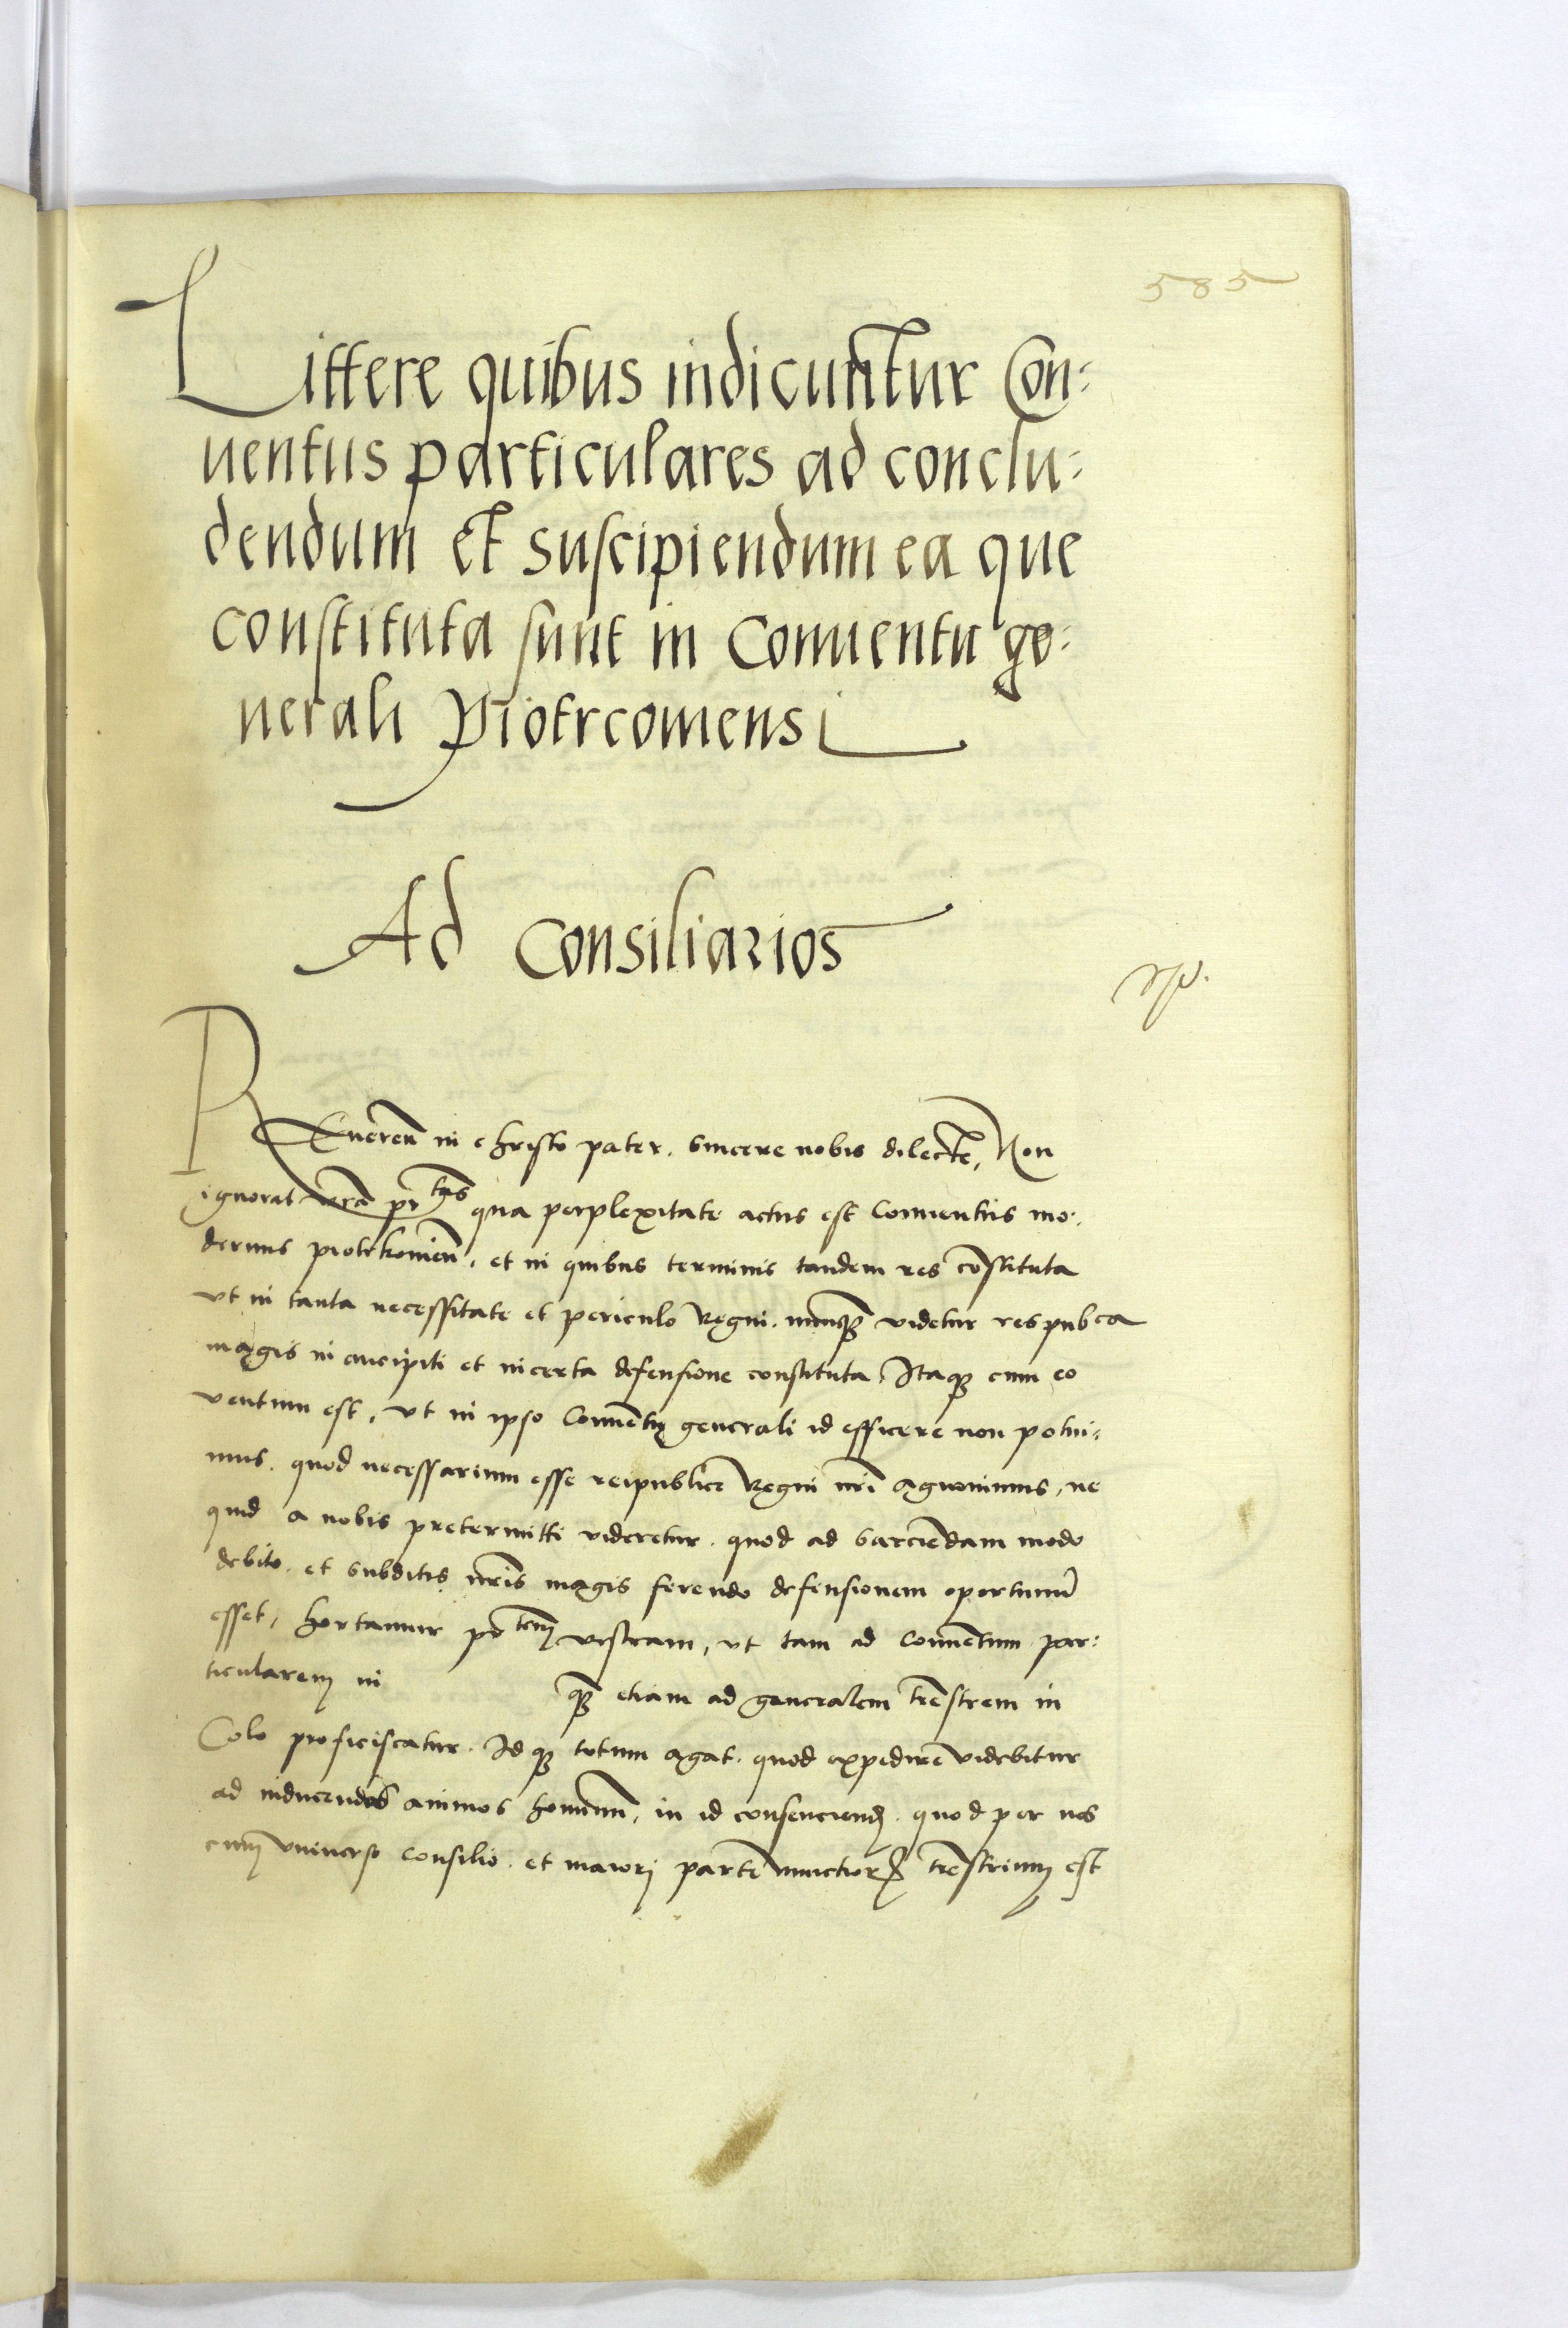 585
Littere quibus indicuntur Con:
uentus particulares ad conclu:
dendum et suscipiendum ea que
constituta sunt in Conuentu ge:
nerali Piotrcouiensi
Ad Consiliarios
REueren in christo pater. sincere nobis dilecte, Non
ignorat vra prtas qua perplexitate actus est Conuentus mo:
dernus piotrkouien, et in quibus terminis tandem res constituta
vt in tanta necessitate et periculo Regni. nunquam videtur respubca
magis in ancipiti et incerta defensione constituta, Itaque cum eo
ventum est, vt in ipso Conuentu generali id efficere non potui:
mus. quod necessarium esse reipublice Regni nri agnouimus, ne
quid a nobis pretermitti videretur. quod ad sarciendam modo
debito. et subditis nris magis ferendo defensionem oportunum
esset, hortamur ptem vestram, vt tam ad conuentum par:
ticularem in quam etiam ad generalem trestrem in
Colo proficiscatur. Idque totum agat. quod expedire videbitur
ad inducendos animos hominum, in id consenciendum. quod per nos
cum vniuerso consilio. et maiori parte nunctiorum trestrium est